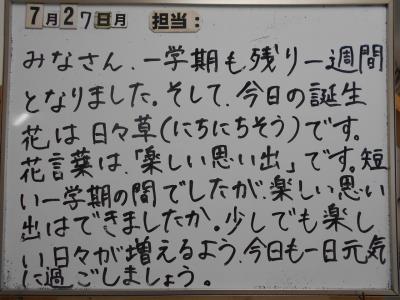 7月27日月 担当:
みなさん、一学期も残り一週間
となりました。そして、今日の誕生
花は日々草(にちにちそう)です。
花言葉は、「楽しい思い出」です。短
い一学期の間でしたが、楽しい思い
出はできましたか。少しでも楽し
い日々が増えるよう、今日も一日元気
に過ごしましょう。